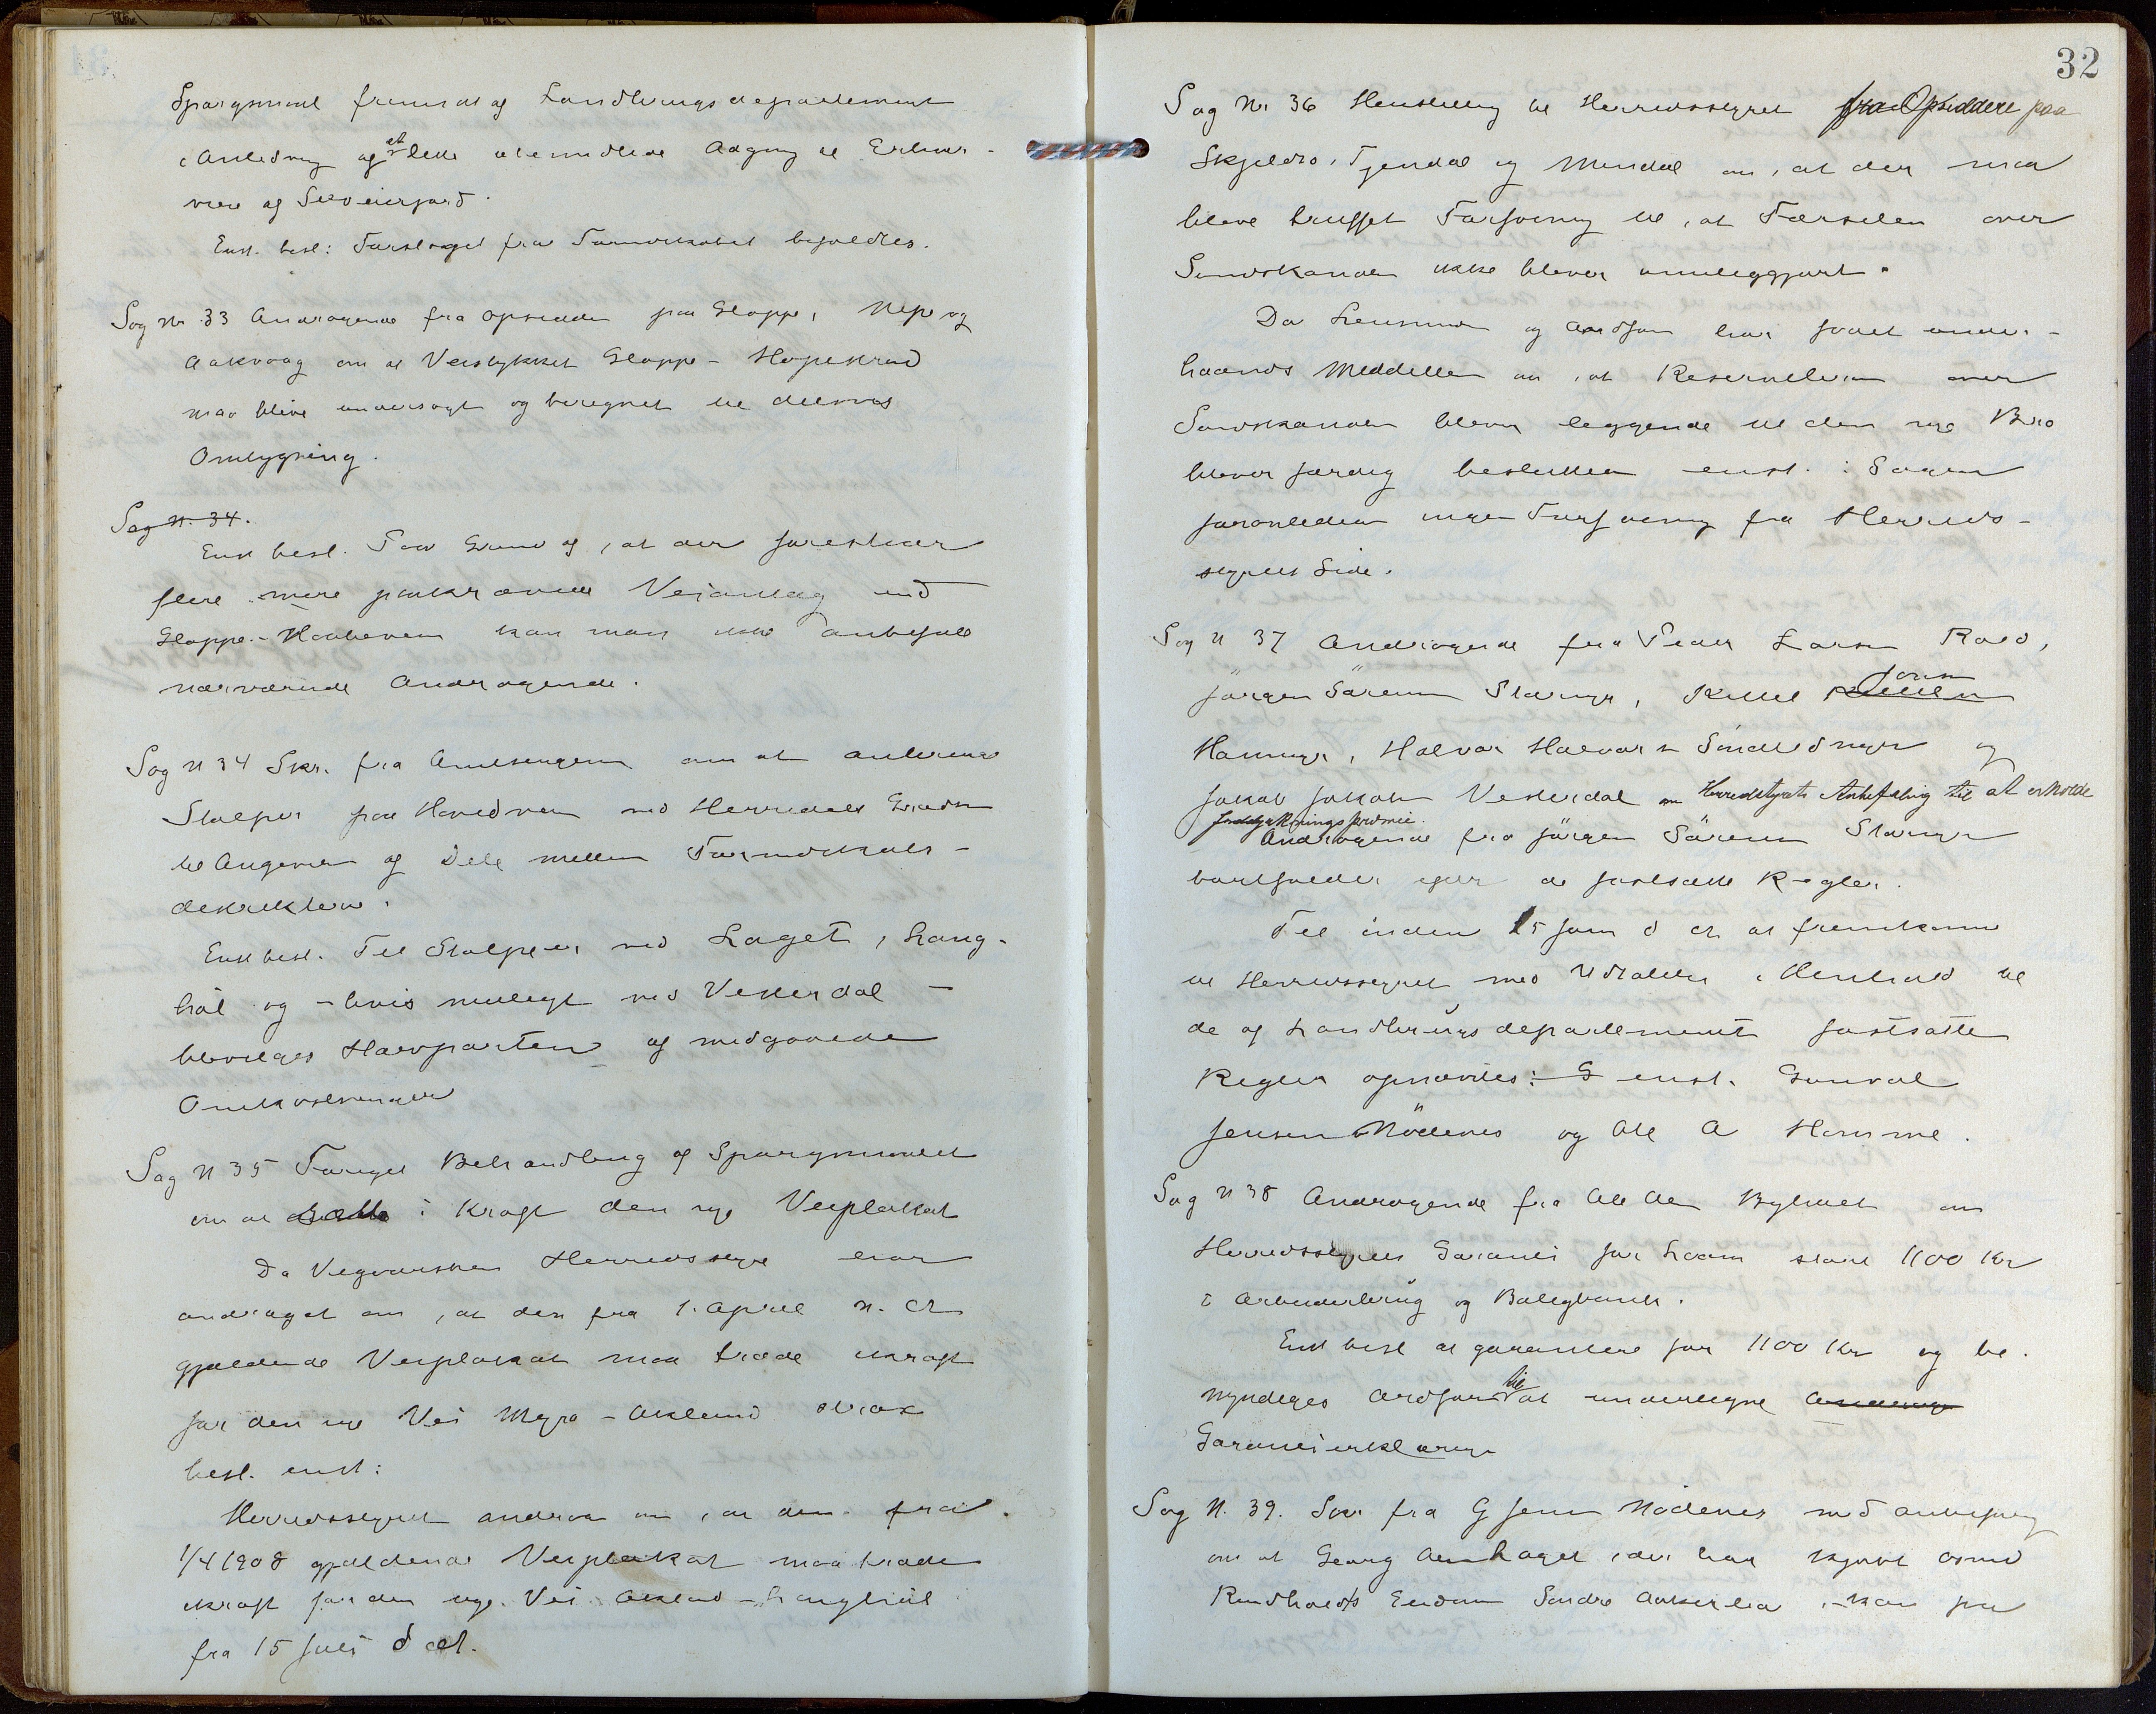 Spørgsmaal fremsat af Landbrugsdepartement
i Anledning af at lette ubemidlede Adgang til Erhver-
velse af Selveierjord.
Enst. besl: Forslaget fra Formandskabet befuldtes.
Sag No 33 Andragende fra Opsiddere paa Gloppe, Nipe og
Aakvaag om at Veistykket Gloppe - Hopekrad
maa blive undersøgt og beregnet til dettes
Omlygning.
Sag N. 34.
Enst besl. Paa Grund af, at der forestaar
flere mere paakrævede Veianlæg end
Gloppe - kan man ikke anbefale
nærværende Andragende.
Sag N 34 Skr. fra Amtsingeniør om at anbringe
Stolper paa Hovedveien ved Herredets Grændse
til Angivelse af Dele mellem Formandskabs-
distrikterne.
Enst besl. Til Stolper ved Laget, Lang-
hål og - hvis muligt ved Vesterdal -
bevilges Halvparten af medgaaede
Omkostninger
Sag N 35 Fornyet Behandling af Spørgsmaalet
om at sætte i Kraft den nye Veiplakat
Da Vegaarshei Herredsstyre har
andraget om, at den fra 1. April n. Ar
gjældende Veiplakat maa træde ikraft
for den nye Vei Myra - Akland strax
besl. enst:
Herredsstyret andrar om, at den fra
1/4 1908 gjældende Veiplakat maa træde
ikraft for den nye Vei Akland - Langhål
fra 15 Juli d. A.
32
Sag No 36 Henstilling til Herredsstyret fra Opsiddere paa
Skjeldsø, Fjendal og Mindal om, at der maa
blive truffet Forføining til, at Færselen over
Sundskanalen ikke bliver umuliggjort.
Da Lensmand og Ordfører har faaet under-
haands Meddelelse om, at Reservebroen over
Sundskanalen bliver liggende til den nye Bro
bliver færdig besluttes enst.: Sagen
foranlediger ingen Forføining fra Herreds-
styrets Side.
Sag N 37 Andragende fra Peder Larsen Roed,
Jørgen Sørensen Stamyr, Kittel Jonsen
, Halvor Halvorsen Søndledmyr og
Jakob Jakobsen Vesterdal om Herredstyrets Anbefaling til at erholde
Jorddyrkningspræmie.
Andragende fra Jørgen Sørensen Stamyr
bortfalder efter de fastsatte Regler.
Til inden 15 Juni d Ar at fremkomme
til Herredsstyret med Udtalelse i Henhold til
de af Landbrugsdepartement fastsatte
Regler opnævntes: enst. Gunval
Jensen Mödenes og Ole A Homme.
Sag N 38 Andragende fra Ole Olsen om
Herredsstyrets Garanti for Laan stort 1100 Kr
i Arbeiderbrug og Boligbank.
Enst besl at garantere for 1100 Kr og be-
myndiges Ordføreren til at underskrive
Garantierklæring
Sag N. 39. Skr fra G Jensen Mödenes med Anbefaling
om at Georg , der har kjøbt Osmund
Rundholdts Eiendom Søndre , kan faa